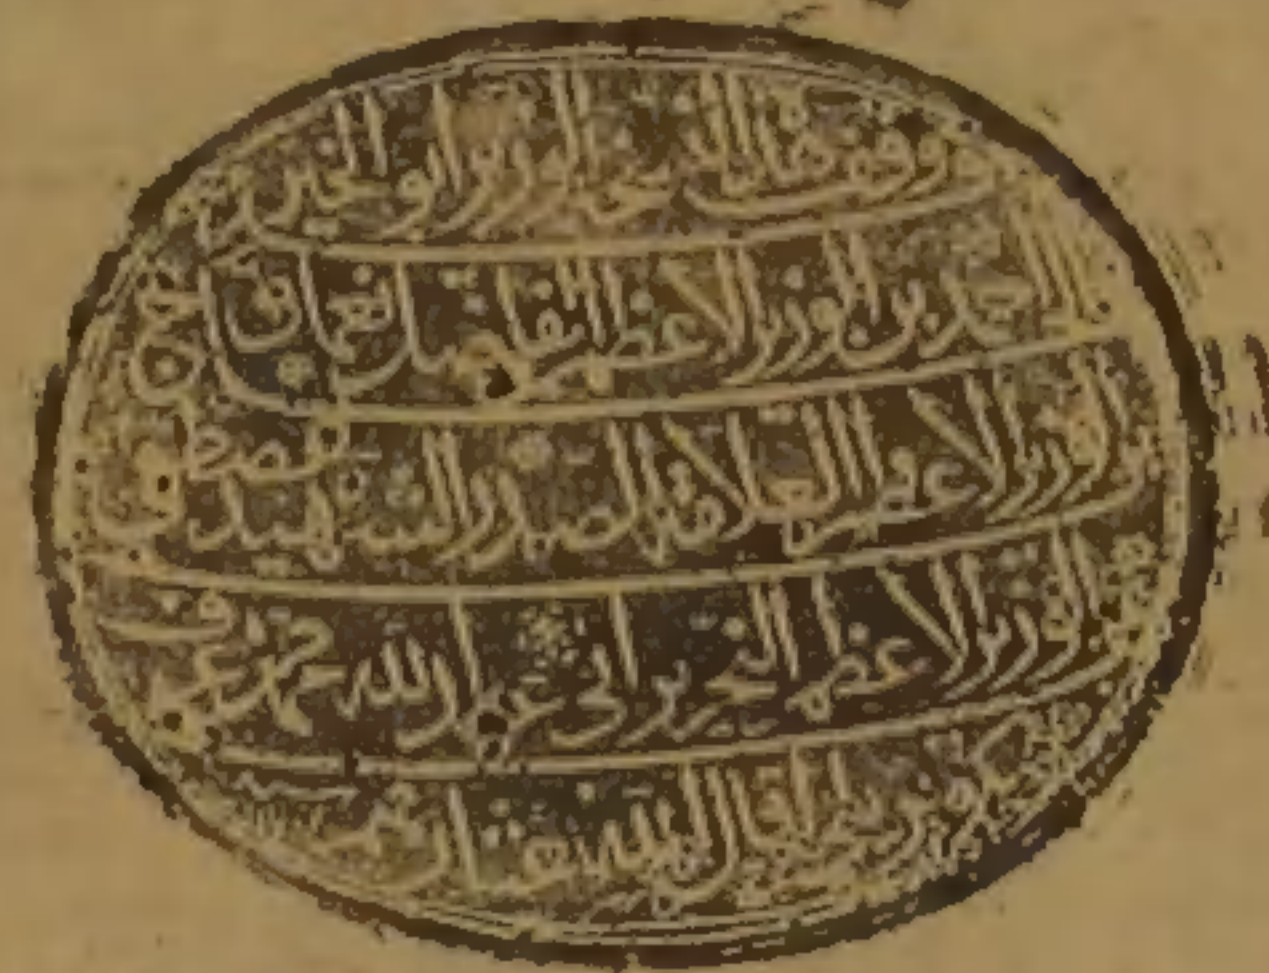 وقف هذا الشيخ الوزير ابو الخير
احمد بن الوزير الاعظم الفاضل نعمان اخ
الوزير الاعظم العلامة الصدر الشهيد مصطفى
الوزير الاعظم النحرير ابي عبد الله محمد عرف
بكوپريلي اقال الله عثارهم